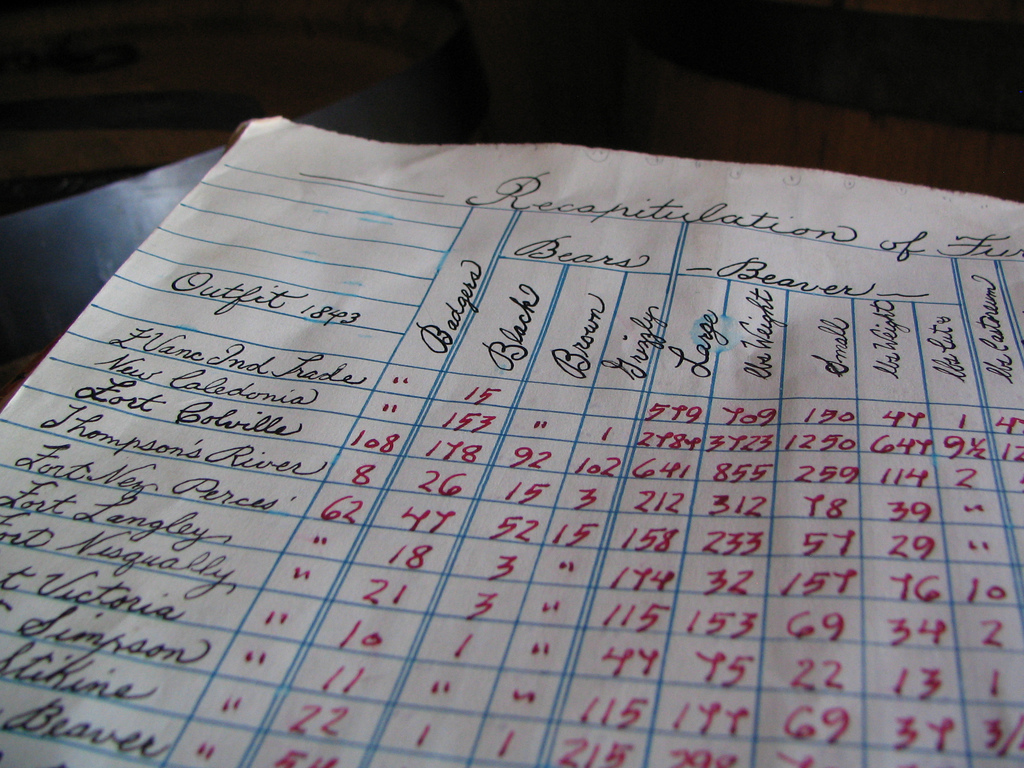 Recapitulation of Fur
Bears - Beaver -
Outfit 1843 Badgers Black Brown Grizzly Large lbs Weight Small lbs Weight lbs Cut's lbs Castorum
F Vanc Ind Trade " 15 579 709 150 47 1 47
New Caledonia " 153 " 1 2784 3723 1250 647 9½ 12
Fort Colville 108 178 92 102 641 855 259 114 2
Thompson's River 8 26 15 3 212 312 78 39 "
Fort Nez Perces' 62 47 52 15 158 233 57 29 "
Fort Langley " 18 3 " 174 32 157 76 10
Fort Nisqually " 21 3 " 115 153 69 34 2
t Victoria " 10 1 " 47 75 22 13 1
Simpson " 11 " " 115 177 69 37 3/
Stikine " 22 1 1 215 298
Beaver " 54